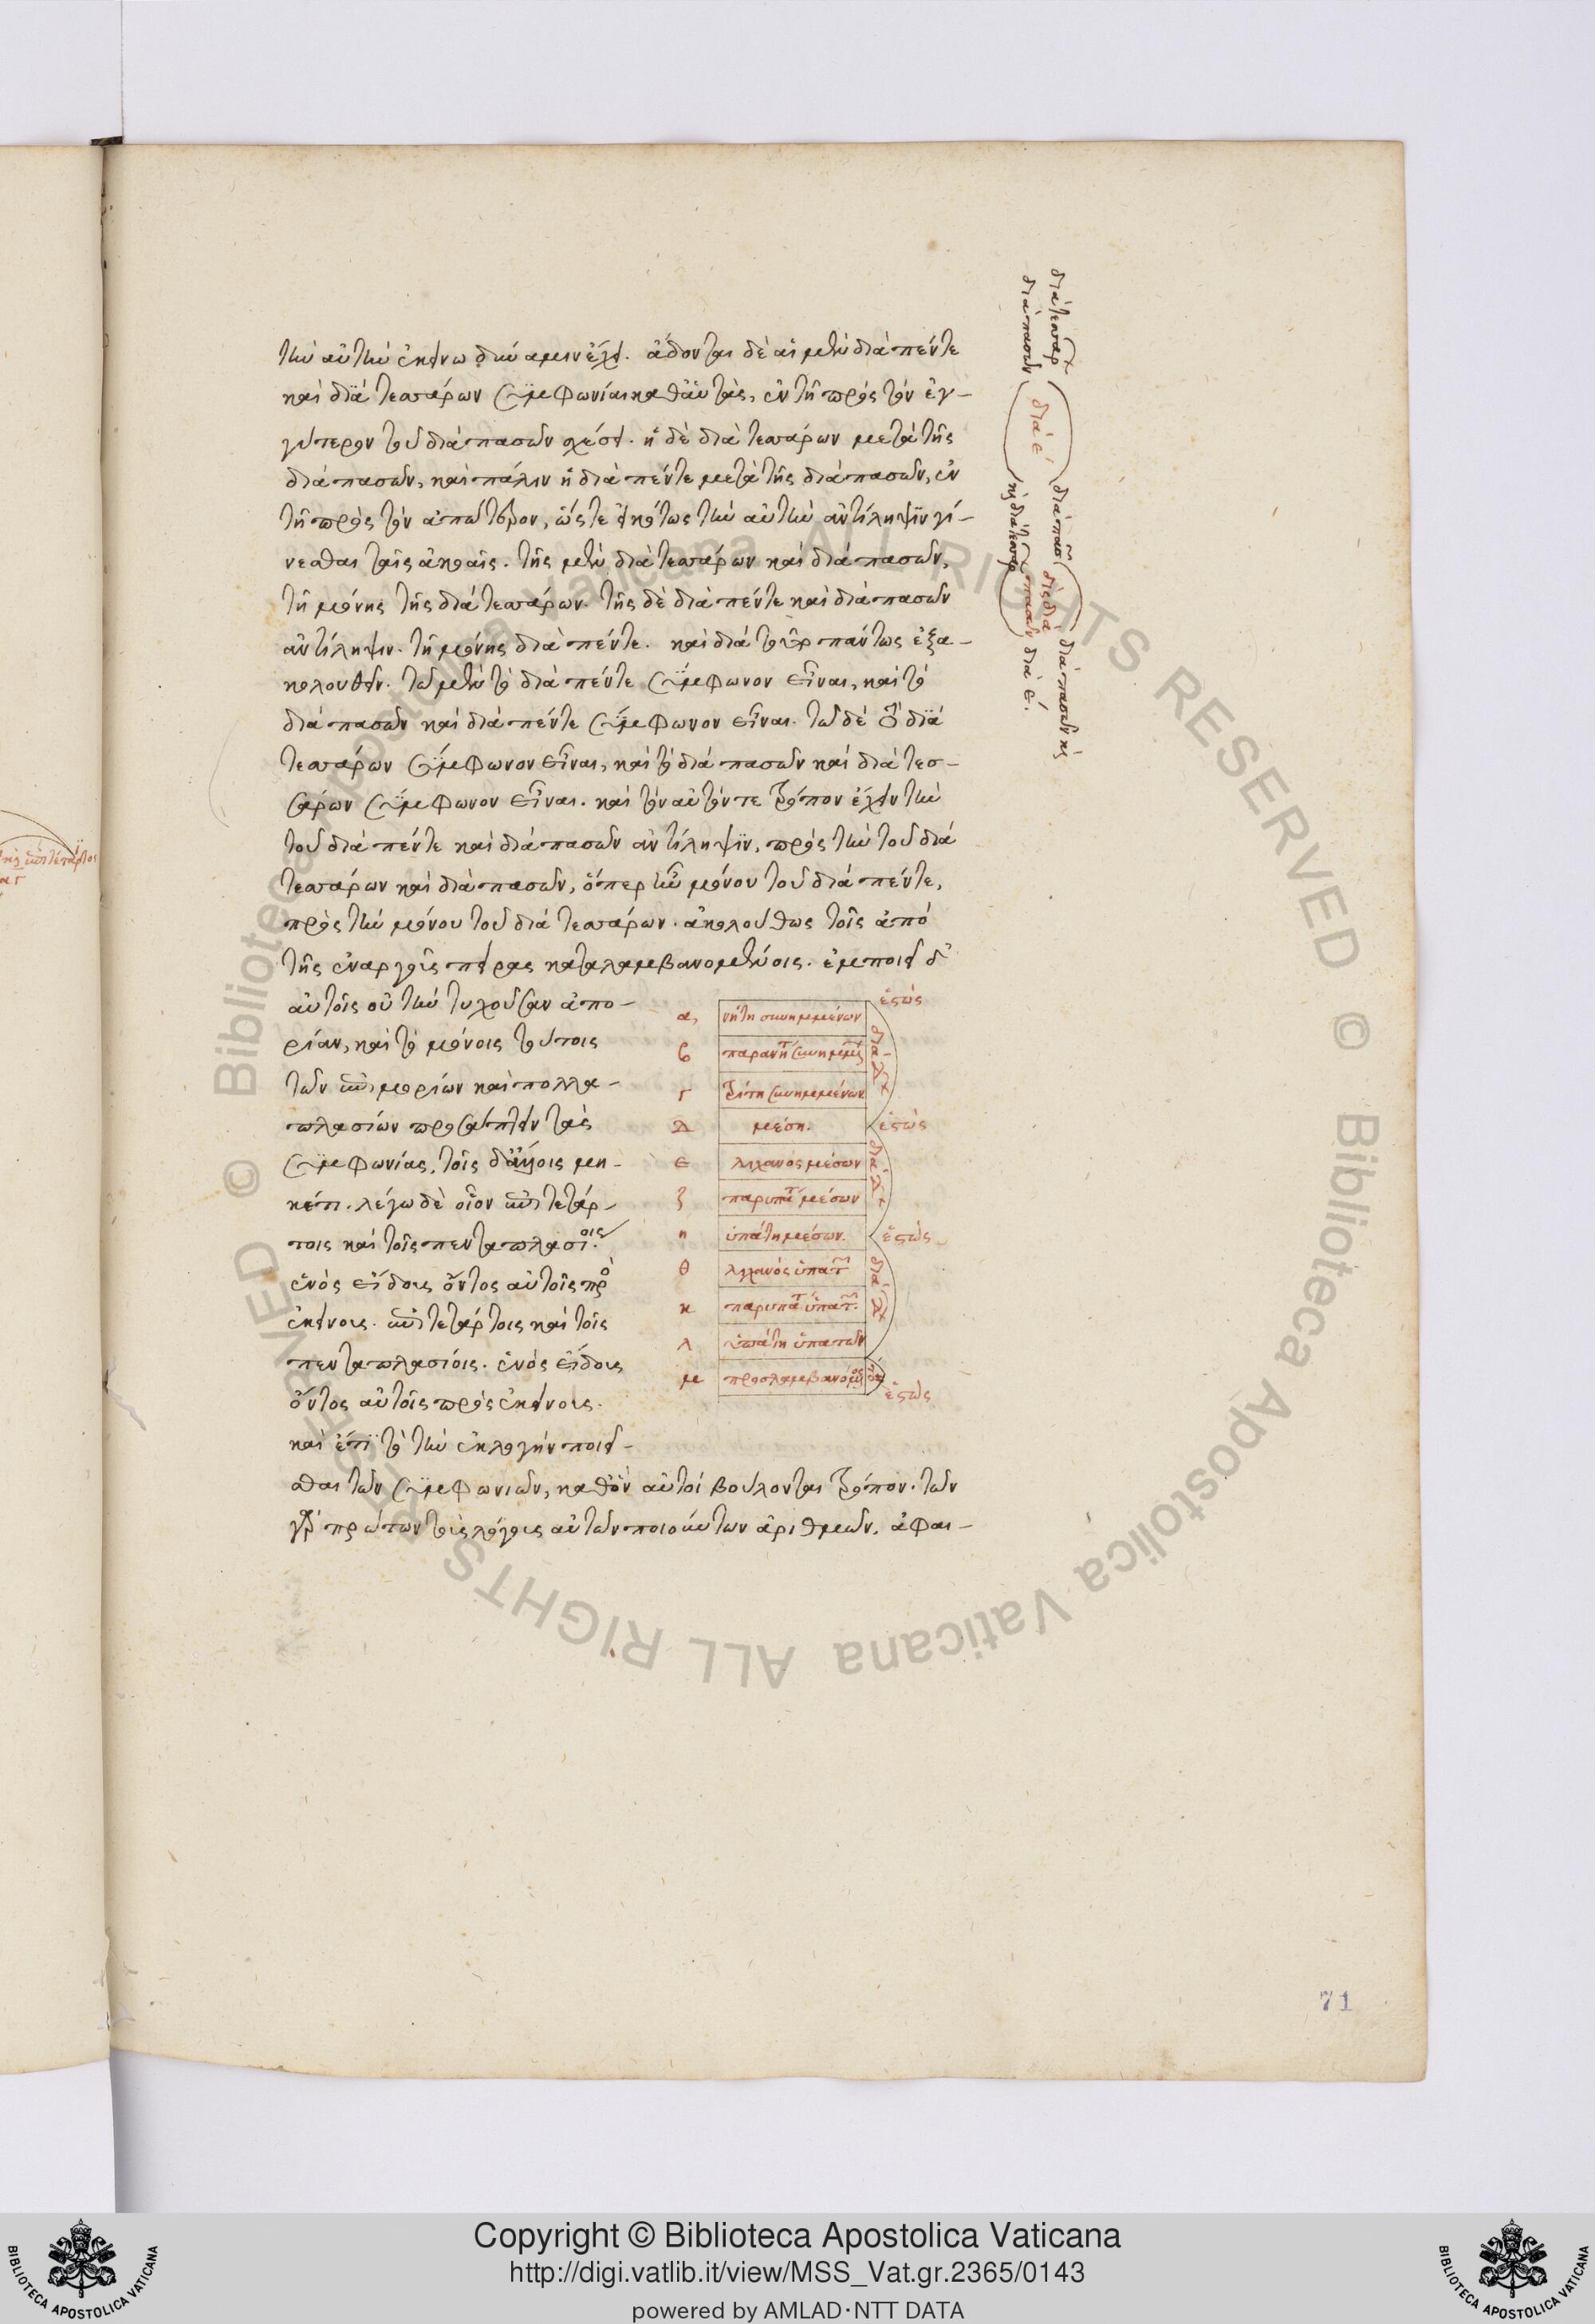 τὴν αὐτὴν ἐκείνῳ δύναμιν ἔχει. ἄδονται δὲ αἱ μὲν διὰ πέντε
καὶ διὰ τεσσάρων συμφωνίαι καθ' αὑτὰς, ἐν τῇ πρὸς τὸν ἐγ-
γύτερον τοῦ διὰ πασῶν σχέσει. ἡ δὲ διὰ τεσσάρων μετὰ τῆς
διὰ πασῶν, καὶ πάλιν ἡ διὰ πέντε μετὰ τῆς διὰ πασῶν, ἐν
τῇ πρὸς τὸν ἀπώτερον, ὥστε εἰκότως τὴν αὐτὴν ἀντίληψιν γί-
νεσθαι ταῖς ἀκοαῖς. τῆς μὲν διὰ τεσσάρων καὶ διὰ πασῶν,
τῇ μόνης τῆς διὰ τεσσάρων. τῆς δὲ διὰ πέντε καὶ διὰ πασῶν
ἀντίληψιν. τῇ μόνης διὰ πέντε. καὶ διὰ τοῦτο πάντως ἐξα-
κολουθεῖν. τῷ μὲν τὸ διὰ πέντε σύμφωνον εἶναι, καὶ τὸ
διὰ πασῶν καὶ διὰ πέντε σύμφωνον εἶναι. τῷ δὲ τὸ διὰ
τεσσάρων σύμφωνον εἶναι, καὶ τὸ διὰ πασῶν καὶ διὰ τεσ-
σάρων σύμφωνον εἶναι. καὶ τὸν αὐτόν τε τρόπον ἔχειν τὴν
τοῦ διὰ πέντε καὶ διὰ πασῶν ἀντίληψιν, πρὸς τὴν τοῦ διὰ
τεσσάρων καὶ διὰ πασῶν, ὅπερ τὴν μόνου τοῦ διὰ πέντε,
πρὸς τὴν μόνου τοῦ διὰ τεσσάρων. ἀκολούθως τοῖς ἀπὸ
τῆς ἐναργοῦς πείρας καταλαμβανομένοις. ἐμποιεῖ δ'
αὐτοῖς οὐ τὴν τυχοῦσαν ἀπο-
ρίαν, καὶ τὸ μόνοις τούτοις
τῶν ἐπιμορίων καὶ πολλα-
πλασίων προσάπτειν τὰς
συμφωνίας, τοῖς δ' ἄλλοις μη-
κέτι. λέγω δὲ οἷον ἐπιτετάρ-
τοις καὶ τοῖς πενταπλασίοις.
ἑνὸς εἴδους ὄντος αὐτοῖς πρὸ
ἐκείνοις. ἐπιτετάρτοις καὶ τοῖς
πενταπλασίοις. ἑνὸς εἴδους
ὄντος αὐτοῖς πρὸς ἐκείνοις.
καὶ ἔτι τὸ τὴν ἐκλογὴν ποιεῖ-
σθαι τῶν συμφωνιῶν, καθ' ὃν αὐτοὶ βούλονται τρόπον. τῶν
γὰρ πρώτων τοὺς λόγους αὐτῶν ποιούντων ἀριθμῶν, ἀφαι-
α νήτη συνημμένων ἑστώς
β παρανήτ συνημμέν
γ τρίτη συνημμένων
δ μέση. ἑστώς
ε λιχανὸς μέσων
ζ παρυπάτ μέσων
η ὑπάτη μέσων. ἑστώς
θ λιχανὸς ὑπατ
κ παρυπάτ ὑπατ.
λ ὑπάτη ὑπατῶν
μ προσλαμβανόμενος ἑστώς
διὰ τεσσάρ
διὰ πασῶν
διὰ ε
διὰ πασ
κ διὰ τεσσάρ
διὰ πασῶν κ
διὰ ε.
71
Copyright © Biblioteca Apostolica Vaticana
http://digi.vatlib.it/view/MSS_Vat.gr.2365/0143
powered by AMLAD·NTT DATA
BIBLIOTECA APOSTOLICA VATICANA
BIBLIOTECA APOSTOLICA VATICANA
© Biblioteca Apostolica Vaticana ALL RIGHTS RESERVED © Biblioteca Apostolica Vaticana ALL RIGHTS RESERVED